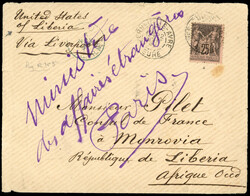 United States
of Liberia
Via Liverpool
25
ministère
des affaires étrangères
Paris
Monsieur Pellet
Consul de France
à Monrovia
République de Liberia
Afrique Occid